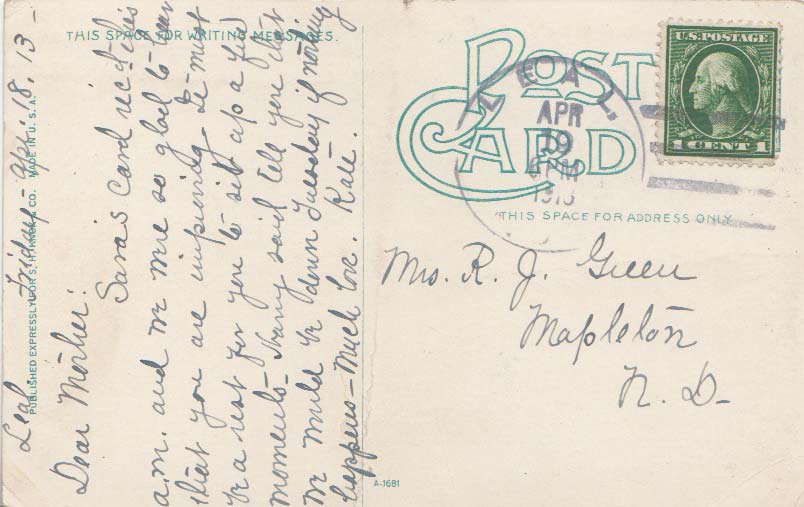 THIS SPACE FOR WRITING MESSAGES.
Leal Friday - Apr. 18. 13 -
Dear Mother:
Sara's card rec'd this
a.m. and we were so glad to hear
that you are improving. It must
be a rest for you to sit up a few
moments - Harry said tell you that
we would be down Tuesday if nothing
happens - Much love. Kate.
PUBLISHED EXPRESSLY FOR S. H. & CO. MADE IN U. S. A.
POST CARD
LEAL.
APR
19
6 PM
1913
U.S. POSTAGE
1 CENT 1
THIS SPACE FOR ADDRESS ONLY
Mrs. R. J. Green
Mapleton
N. D.
A-1681